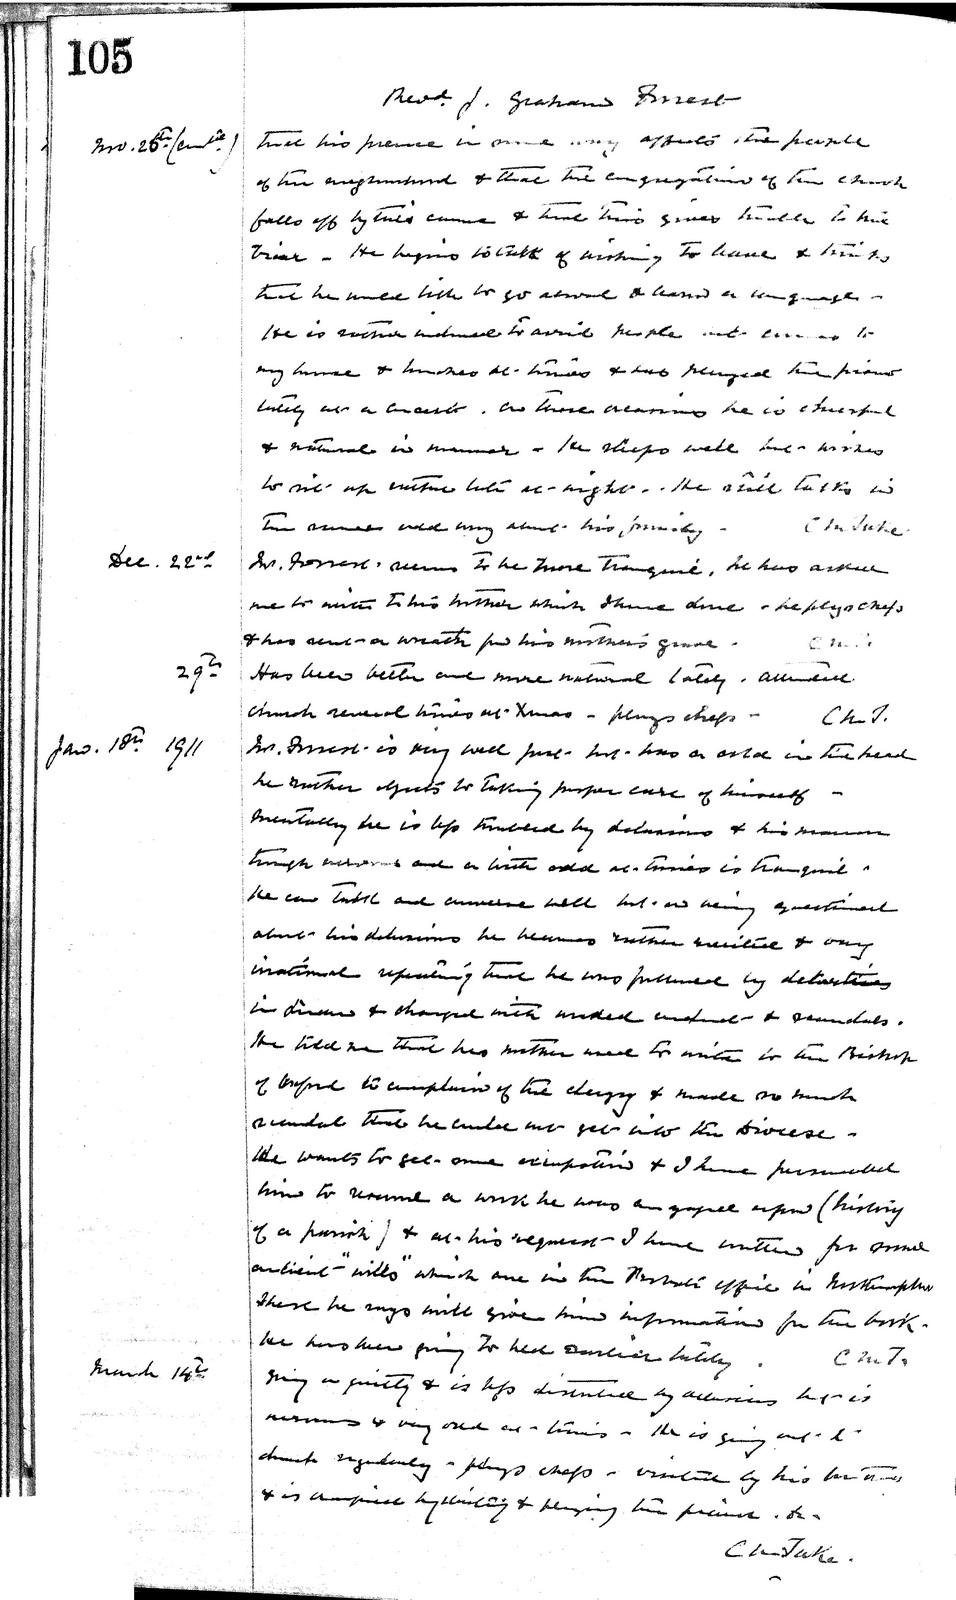 105
Revd. J. Graham Forrest
Nov. 26th (contd.) that his presence in some way affects the people
of the neighbourhood & that the congregation of the church
falls off by this cause & that this gives trouble to the
Vicar - He begins to talk of wishing to leave & thinks
that he would like to go abroad & learn a language -
He is rather inclined to avoid people but comes to
my house & lunches at times & has played the piano
lately at a concert. On those occasions he is cheerful
& natural in manner - He sleeps well but wishes
to sit up rather late at night. He still talks in
the same odd way about his family - C M Tuke
Dec. 22nd Mr. Forrest seems to be more tranquil, he has asked
me to write to his brother which I have done - he plays chess
& has sent a wreath for his mother's grave - C M T.
29th Has been better and more natural lately. attended
church several times at Xmas - plays chess - C M T.
Jan. 18th 1911 Mr. Forrest is very well just but has a cold in the head
he rather objects to taking proper care of himself -
Mentally he is less troubled by delusions & his manner
though nervous and a little odd at times is tranquil -
He can talk and converse well but on being questioned
about his delusions he becomes rather excited & very
irrational repeating that he was followed by detectives
in & charged with conduct & scandals.
He told me that his mother used to write to the Bishop
of Oxford to complain of the clergy & made so much
scandal that he could not get into the Diocese -
He wants to get some occupation & I have persuaded
him to resume a work he was engaged upon (history
of a parish) & at his request I have written for some
ancient "wills" which are in the Probate office in Northampton
These he says will give him information for the book -
He has been going to bed earlier lately. C M T.
March 14th Going on quietly & is less disturbed by delusions but is
nervous & very odd at times - He is going out to
church regularly - plays chess - visited by his brother
& is occupied by writing & playing the piano. &c -
C M Tuke.